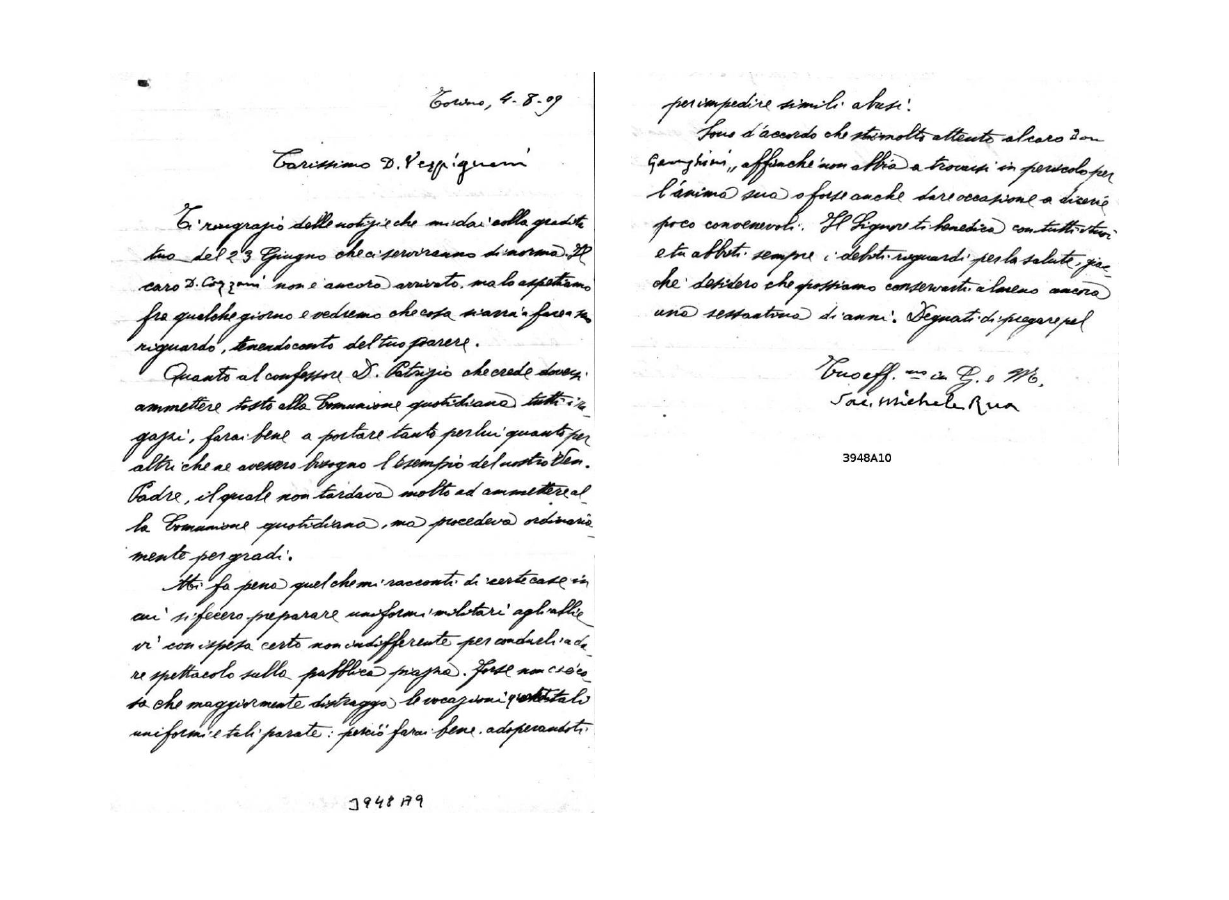 Torino, 4-8-09
Carissimo D. Vespignani
Ti ringrazio delle notizie che mi dai colla gradita
tua del 23 Giugno che ci serviranno di norma. Il
caro D. Cozzani non è ancora arrivato. ma lo aspettiamo
fra qualche giorno e vedremo che cosa si avrà a fare a suo
riguardo, tenendo conto del tuo parere.
Quanto al confessore D. Patrizio che crede doversi
ammettere tosto alla Comunione quotidiana tutti i ra-
gazzi, farai bene a portare tanto per lui quanto per
altri che ne avessero bisogno l'esempio del nostro Ven.
Padre, il quale non tardava molto ad ammettere al-
la Comunione quotidiana, ma procedeva ordinaria-
mente per gradi.
Mi fa pena quel che mi racconti di certe case in
cui si fecero preparare uniformi militari agli allie-
vi con ispesa certo non indifferente per condurli a da-
re spettacolo sulla pubblica piazza. Forse non c'è co-
sa che maggiormente distragga le vocazioni tali
uniformi e tali parate: perciò farai bene adoperandoti
3948A9
per impedire simili abusi.
Sono d'accordo che stii molto attento al caro Don
affinchè non abbia a trovarsi in pericolo per
l'anima sua o forse anche dare occasione a dicerie
poco convenevoli. Il Signore ti benedica con tutti i tuoi
e tu abbiti sempre i debiti riguardi per la salute, giac-
chè desidero che possiamo conservarti almeno ancora
una sessantina di anni. Degnati di pregare pel
Tuo aff.mo in G. e M.
Sac. Michele Rua
3948A10